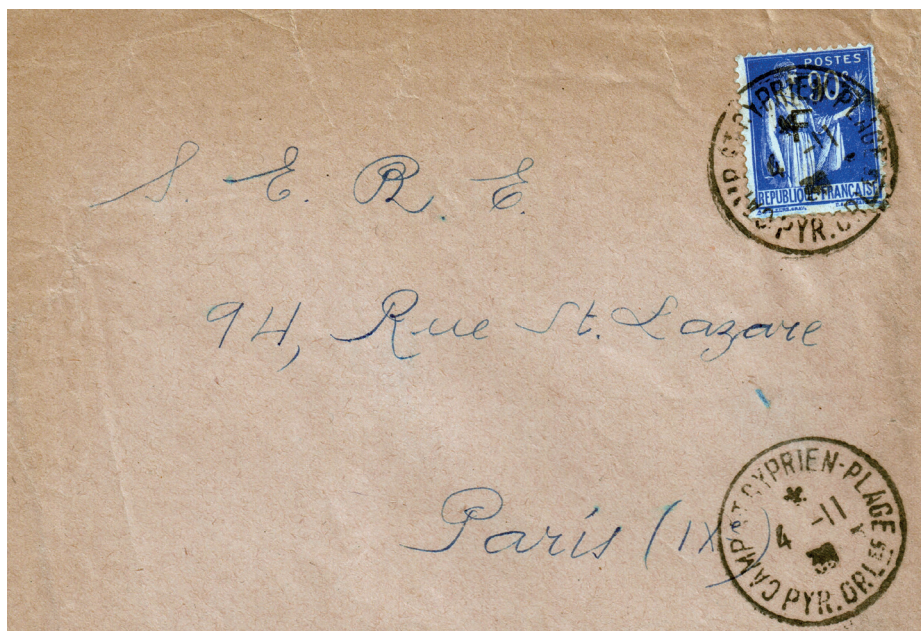 POSTES
90c
F
RÉPUBLIQUE FRANÇAISE
CAMP ST CYPRIEN-PLAGE
4 -11
PYR. ORLES
S E. R. E.
94, Rue St. Lazare
París (IX)
CAMP ST CYPRIEN-PLAGE
4 -11
PYR. ORLES